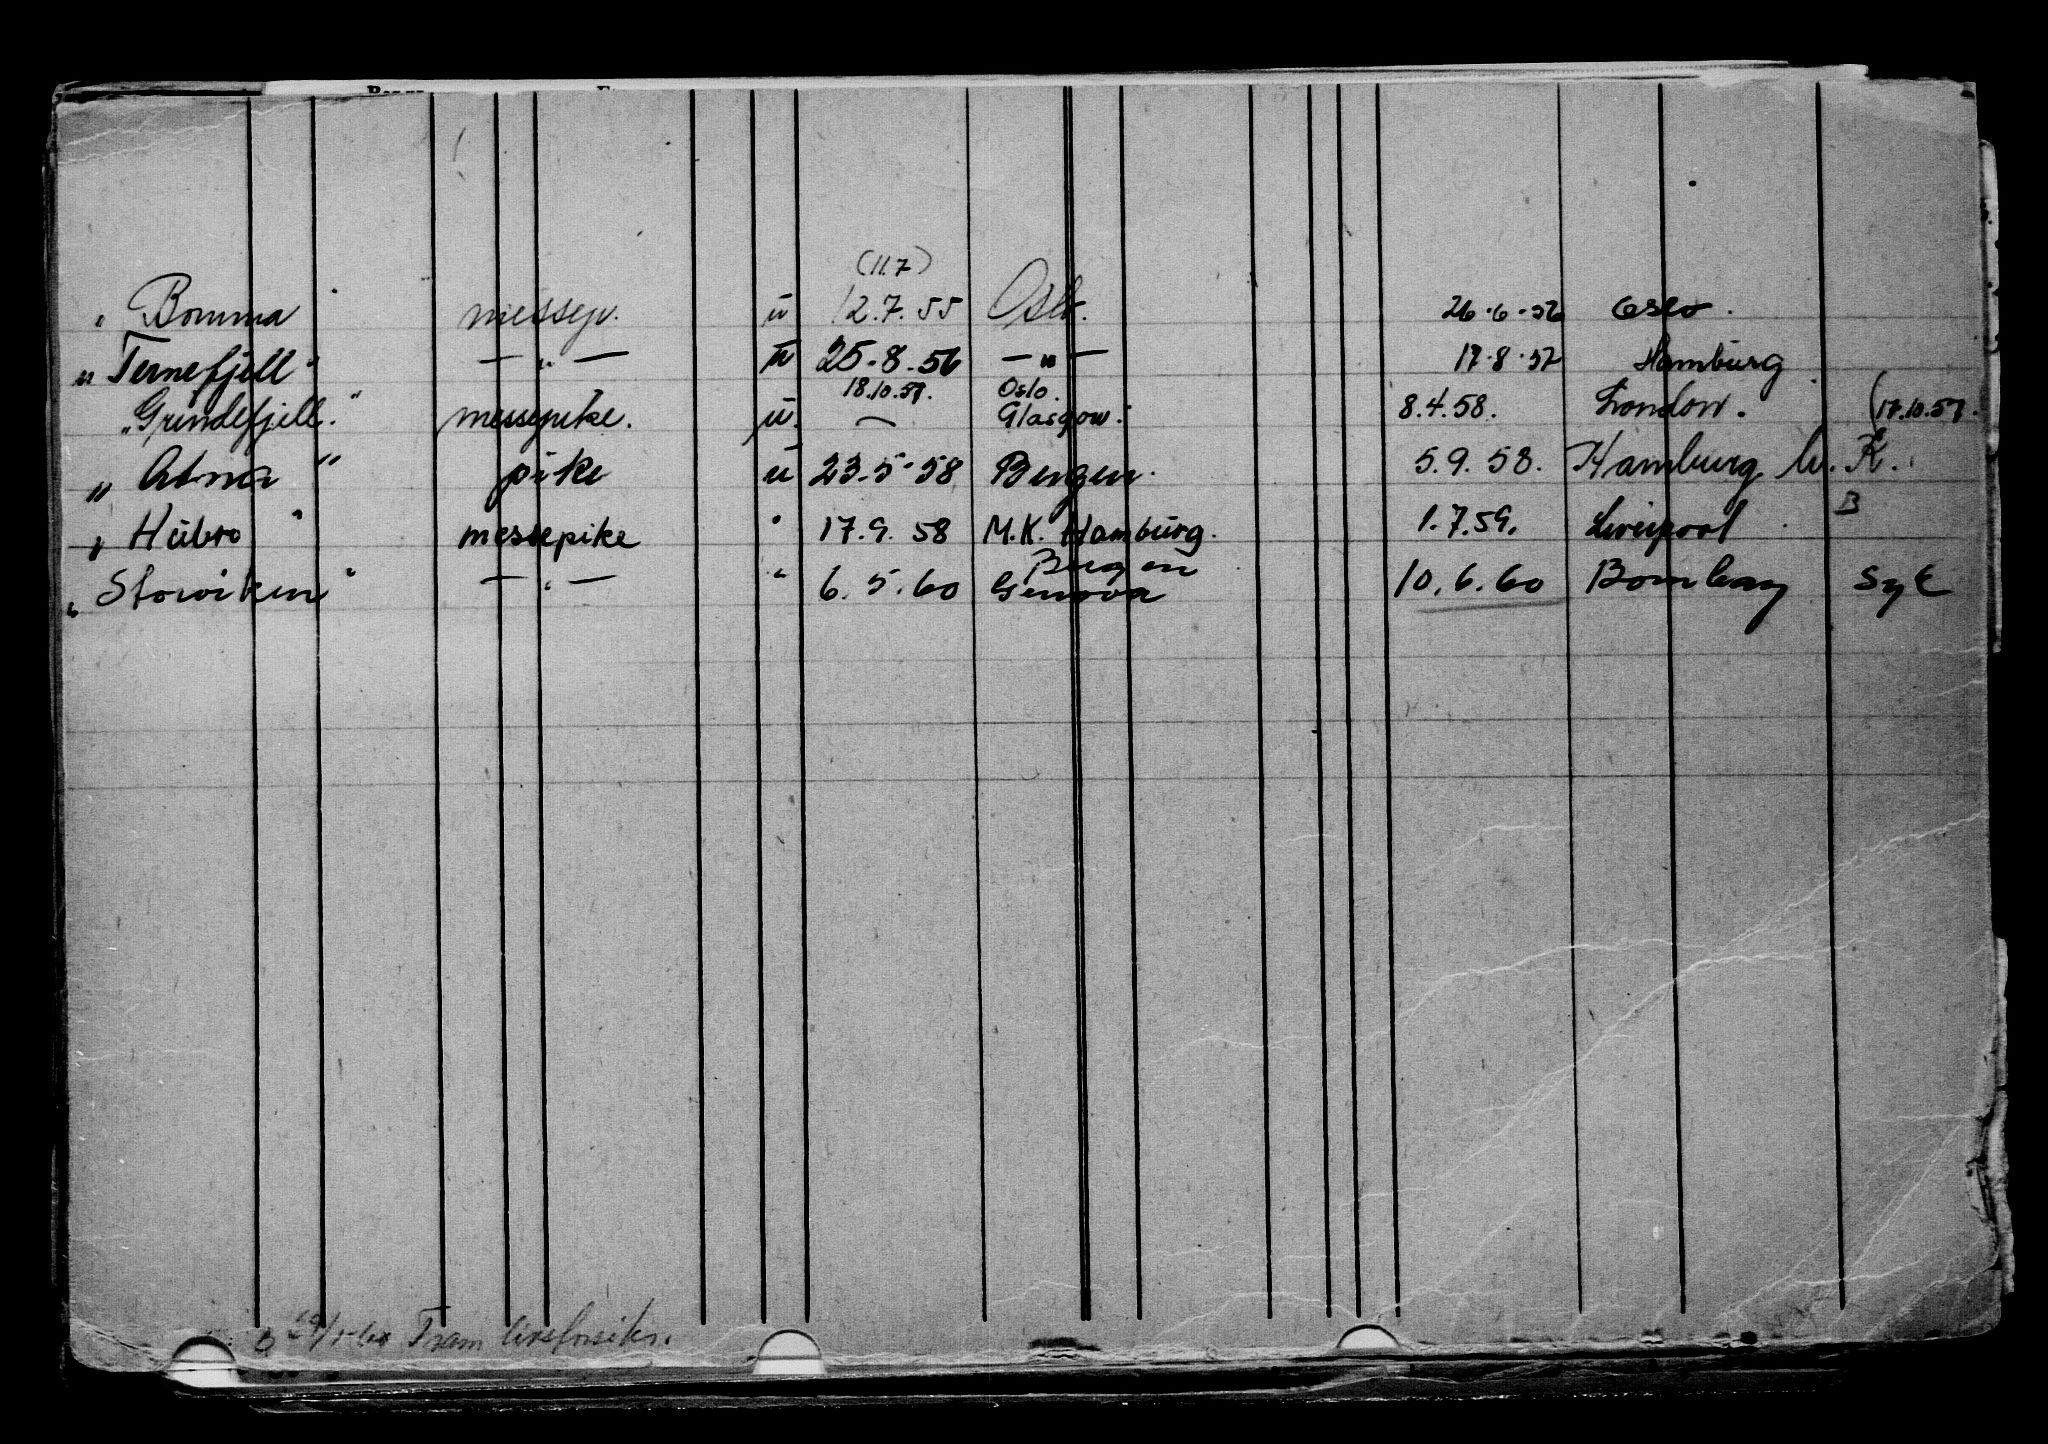 (11.7)
" Bomma " messep. u 12.7.55 Oslo. 26.6.56 Oslo.
" Ternefjell " — " — u 25.8.56 — " — 17.8.57 Hamburg
18.10.57. Oslo.
" Grindefjell. " messepike. u. — Glasgow. 8.4.58. London. (17.10.57.
" Atna " pike u 23.5.58 Bergen. 5.9.58. Hamburg K.
B
" Hubro " messepike " 17.9.58 M.K. Hamburg. 1.7.59. Liverpool
Bergen
" Storviken " — " — " 6.5.60 Genova 10.6.60 Bombay Syk
Fram livsforsikr.